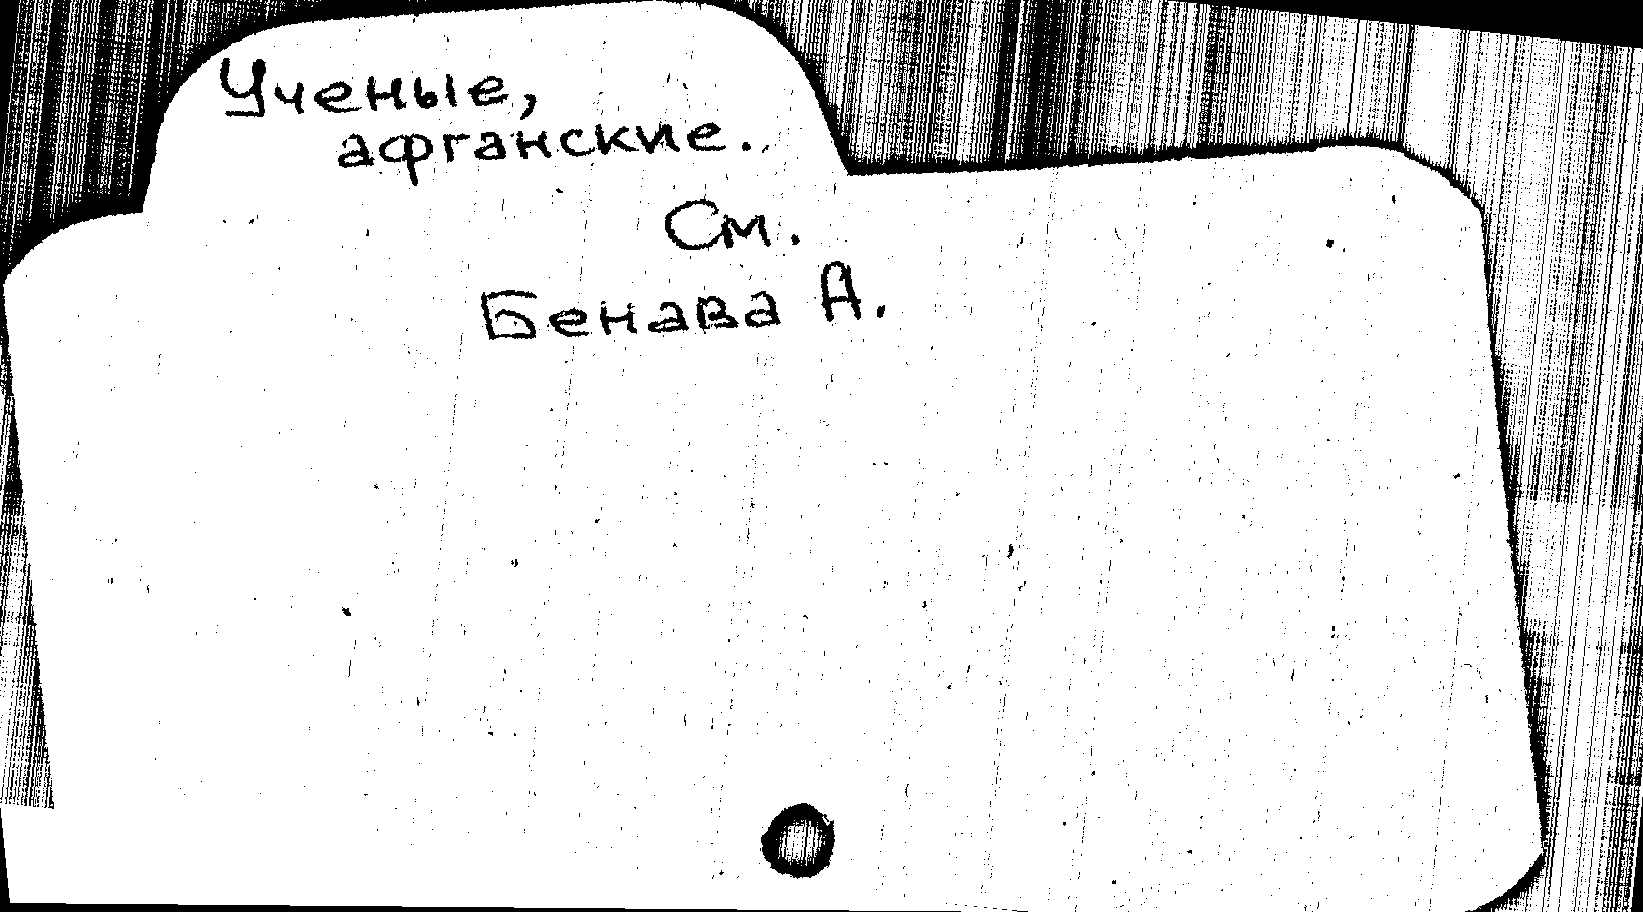 Ученые,
афганские.
См.
Бенава А.